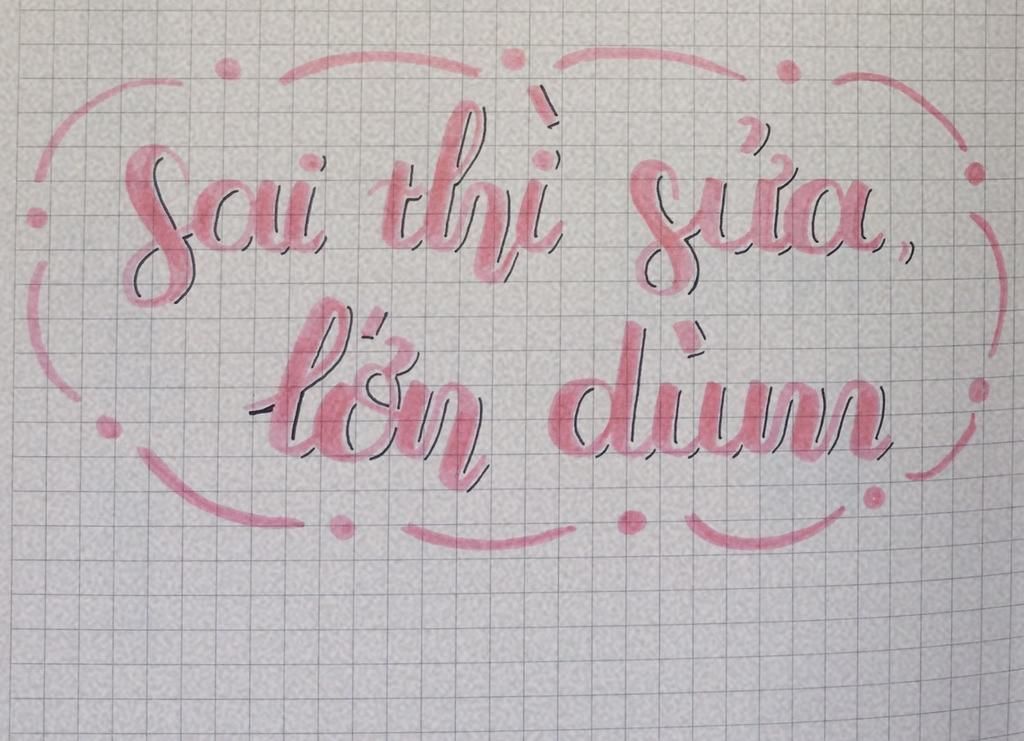 Sai thì sửa,
lớn dùm